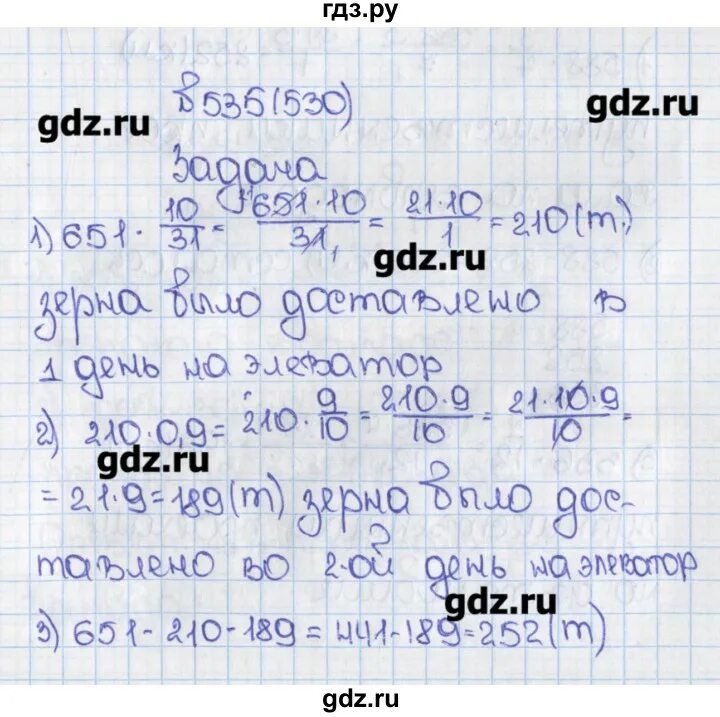 гдз.ру
В 535(530)
gdz.ru
gdz.ru
Задача
1) 651 · 10/31 = 651·10/31 = 21·10/1 = 210 (т.)
gdz.ru
зерна было доставлено в
1 день на элеватор
2) 210·0,9 = 210 · 9/10 = 210·9/10 = 21·10·9/10 =
gdz.ru
= 21·9 = 189 (т) зерна было дос-
тавлено во 2-ой день на элеватор
gdz.ru
3) 651 - 210 - 189 = 441 - 189 = 252 (т)
gdz.ru